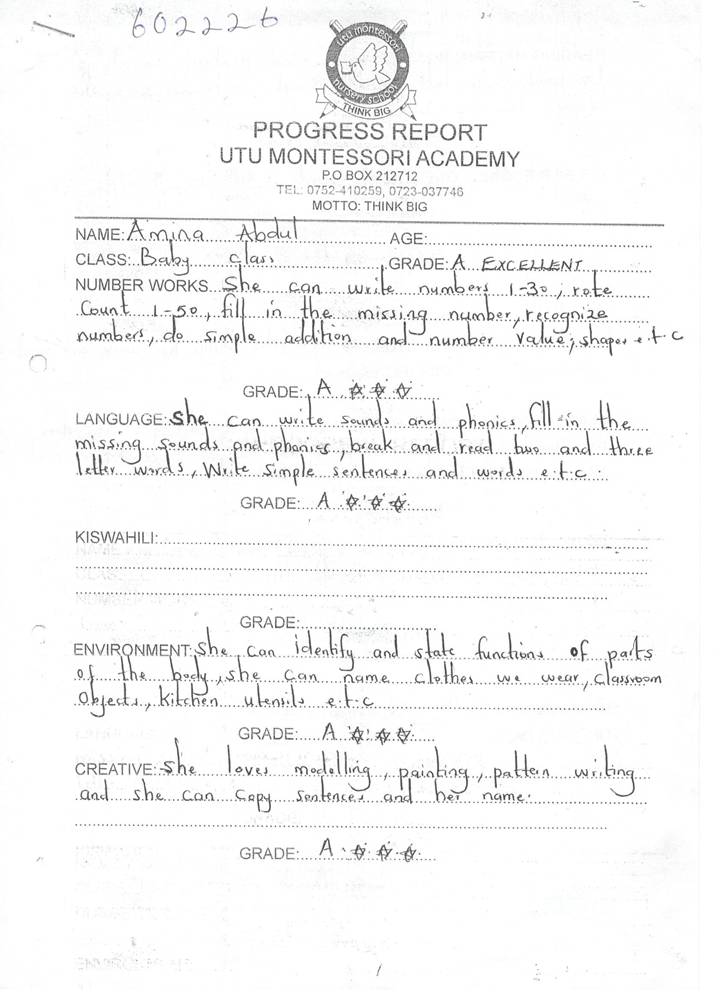 602226
utu montessori
nursery school
THINK BIG
PROGRESS REPORT
UTU MONTESSORI ACADEMY
P.O BOX 212712
TEL: 0752-410259, 0723-037746
MOTTO: THINK BIG
NAME: Amina Abdul AGE:
CLASS: Baby class GRADE: A EXCELLENT
NUMBER WORKS She can write numbers 1-30, rote
Count 1-50, fill in the missing number, recognize
numbers, do simple addition and number value, shapes e.t.c
GRADE: A ☆ ☆ ☆
LANGUAGE: She can write sounds and phonics, fill in the
missing sounds and phonics, break and read two and three
letter words, Write simple sentences and words e.t.c.
GRADE: A ☆ ☆ ☆
KISWAHILI:
GRADE:
ENVIRONMENT: She can identify and state functions of parts
of the body, she can name clothes we wear, classroom
Objects, Kitchen utensils e.t.c
GRADE: A ☆ ☆ ☆
CREATIVE: She loves modelling, painting, pattern writing
and she can copy sentences and her name.
GRADE: A ☆ ☆ ☆